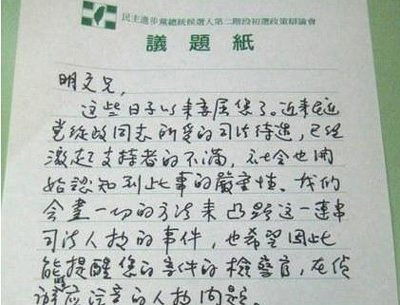 民主進步黨總統候選人第二階段初選政策辯論會
議題紙
明文兄，
這些日子以來委屈您了。近來民進
黨從政同志所受的司法待遇，已經
激起支持者的不滿，社會也開
始認知到此事的嚴重性。我們
會盡一切的方法來凸顯這一連串
司法人權的事件，也希望因此
能提醒您的案件的檢警官，在偵
應注意的人權問題